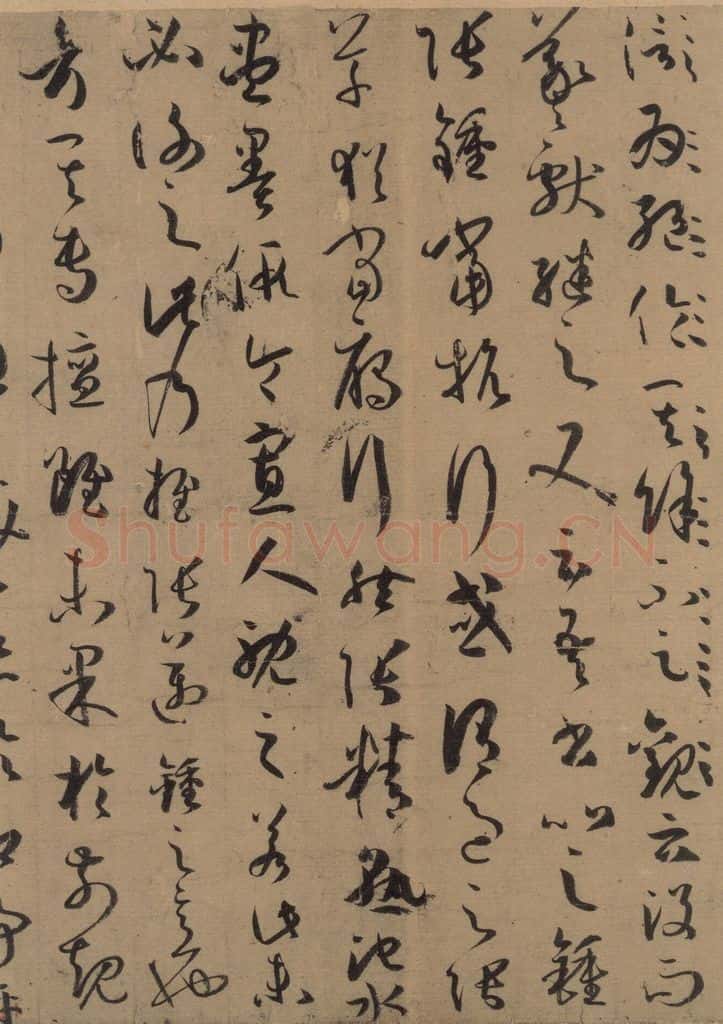 信為絕倫其餘不足觀云沒而
羲獻繼之又云吾書比之鍾
張鍾當抗行或謂過之張
草猶當雁行然張精熟池水
盡墨假令寡人耽之若此未
必謝之此乃推張邁鍾之意也
考其專擅雖未果於前規
Shufawang.CN